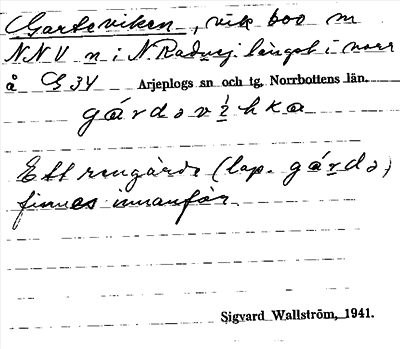 Garteviken, vik 600 m
NNV n i N. Raducj. längst i norr
å G 34 Arjeplogs sn och tg, Norrbottens län.
gárdəvìkka
Ett rengärde (lap. gárdə)
finnes innanför.
Sigvard Wallström, 1941.